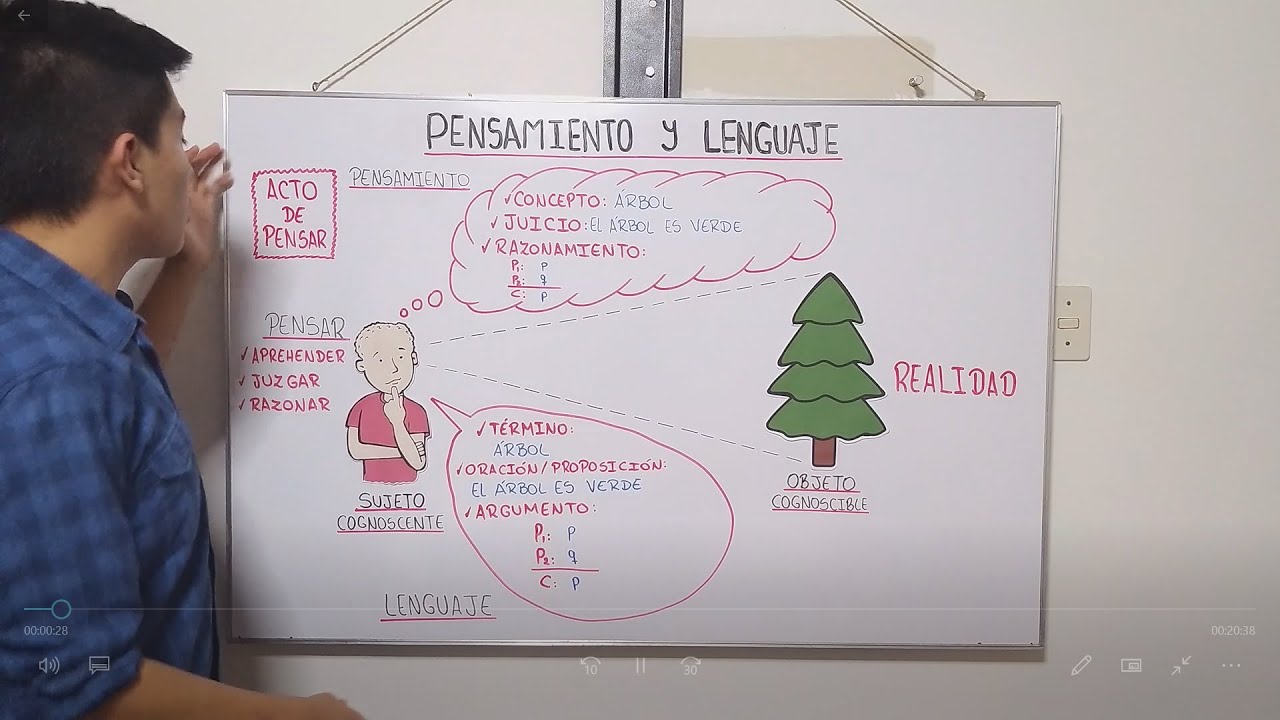 PENSAMIENTO Y LENGUAJE
ACTO
DE
PENSAR
PENSAMIENTO
✓CONCEPTO: ÁRBOL
✓JUICIO: EL ÁRBOL ES VERDE
✓RAZONAMIENTO:
P₁: p
P₂: q
C: p
PENSAR
✓APREHENDER
✓JUZGAR
✓RAZONAR
SUJETO
COGNOSCENTE
REALIDAD
OBJETO
COGNOSCIBLE
✓TÉRMINO:
ÁRBOL
✓ORACIÓN/PROPOSICIÓN:
EL ÁRBOL ES VERDE
✓ARGUMENTO:
P₁: p
P₂: q
C: p
LENGUAJE
00:00:28
00:20:38
10
30